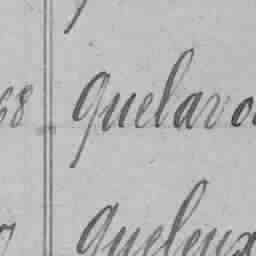 68 Quelavo
Queleux